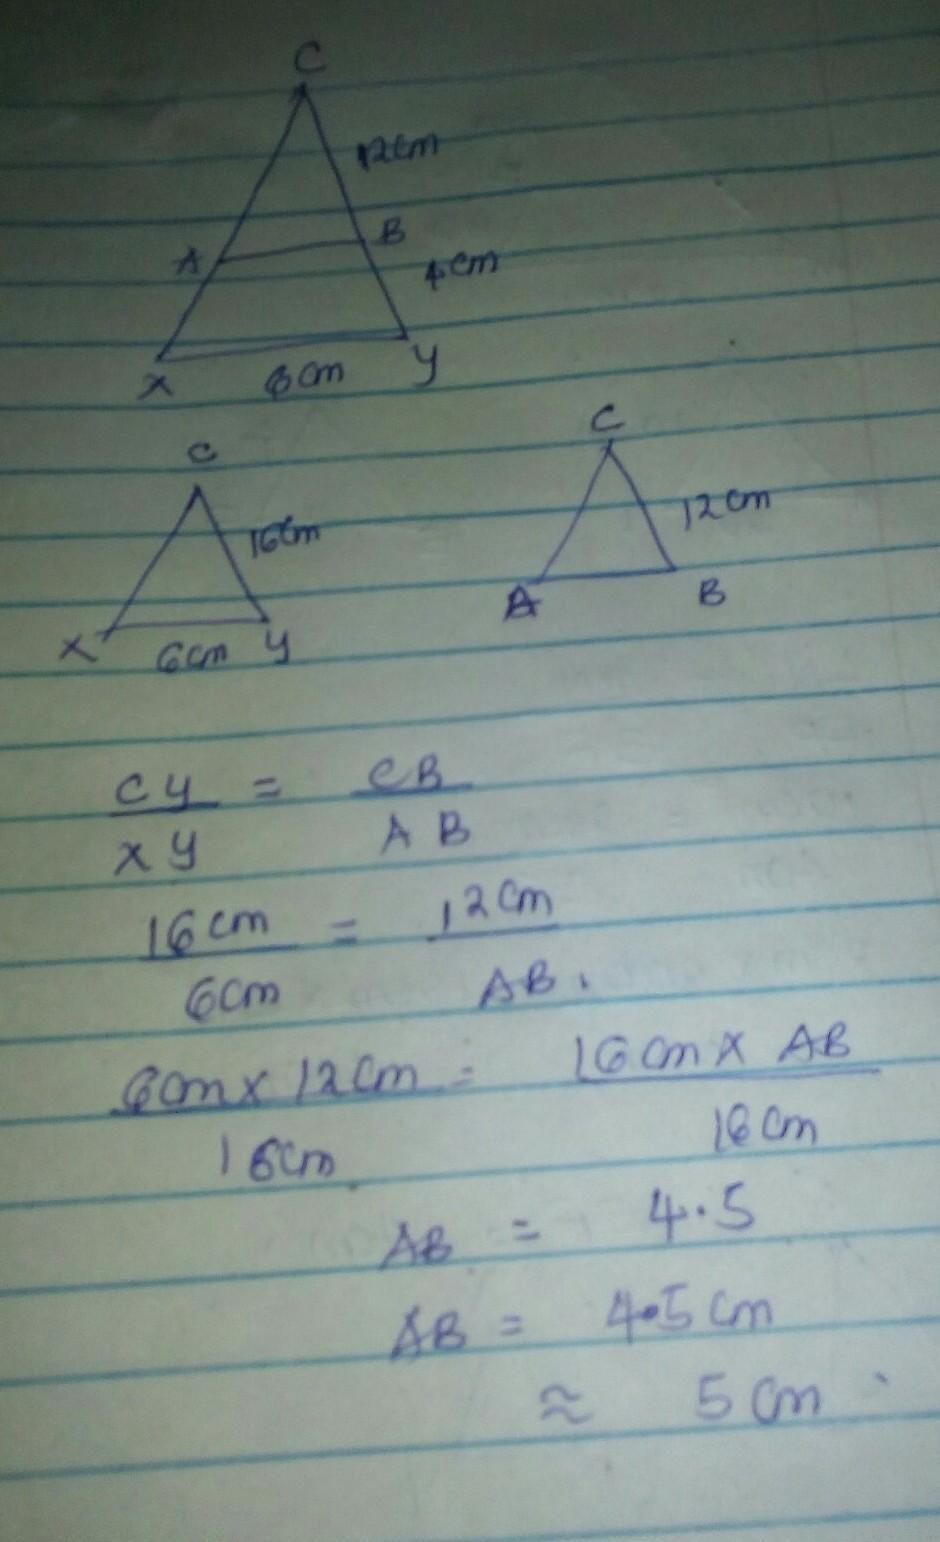 C
12cm
A B
4cm
X 6cm Y
C
16cm
X 6cm Y
C
12cm
A B
CY = CB
XY AB
16cm = 12cm
6cm AB.
6cm x 12cm = 16cm x AB
16cm 16cm
AB = 4.5
AB = 4.5cm
≈ 5cm